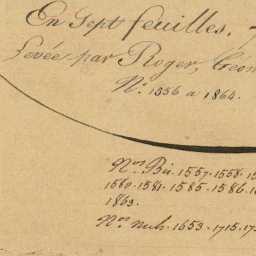 En Sept feuilles.
Levée par Roger, Géom
N.º 1356 a 1864.
N.os Bis. 1557. 1558. 15
1580. 1581. 1585. 1586. 1
1863.
N.os nuls. 1653. 1715. 17